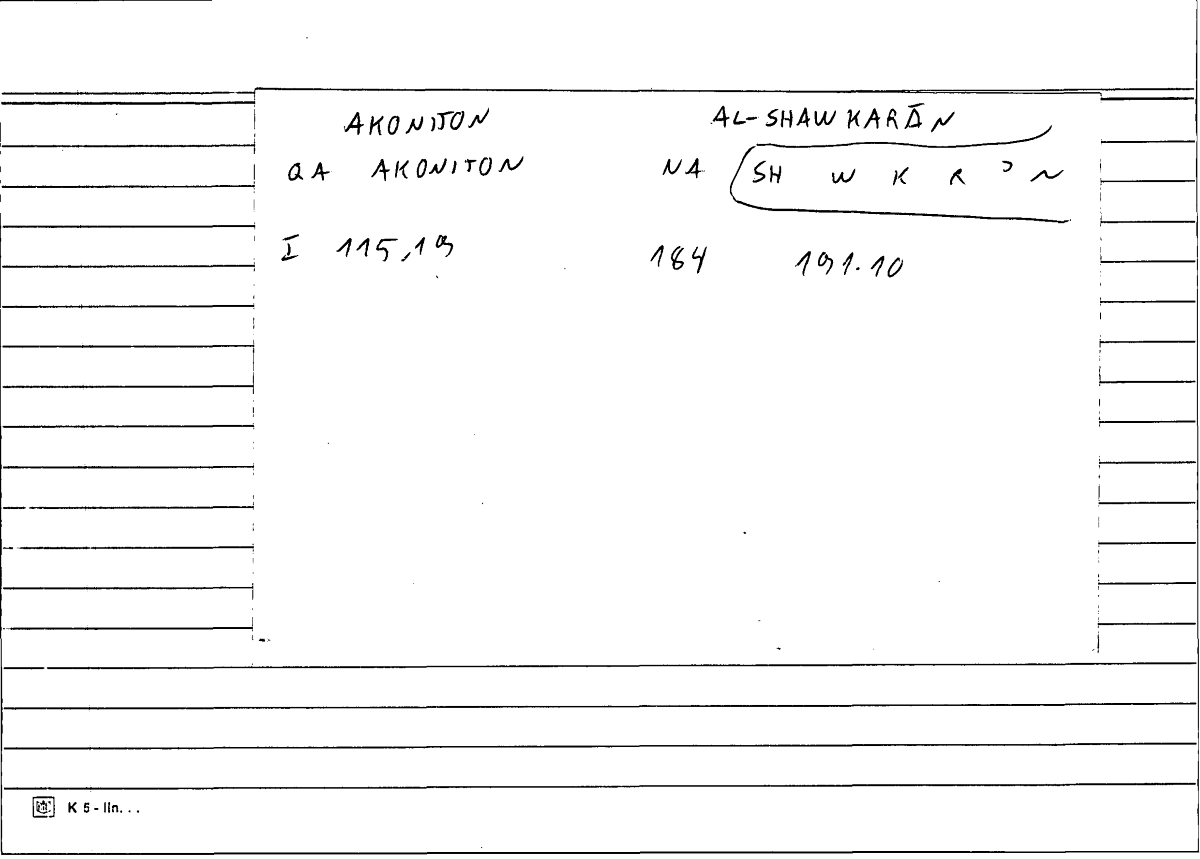 AKONITON AL-SHAWKARĀN
QA AKONITON NA SH W K R ʾ N
I 115,19 184 191.10
K 5 - lin. . .